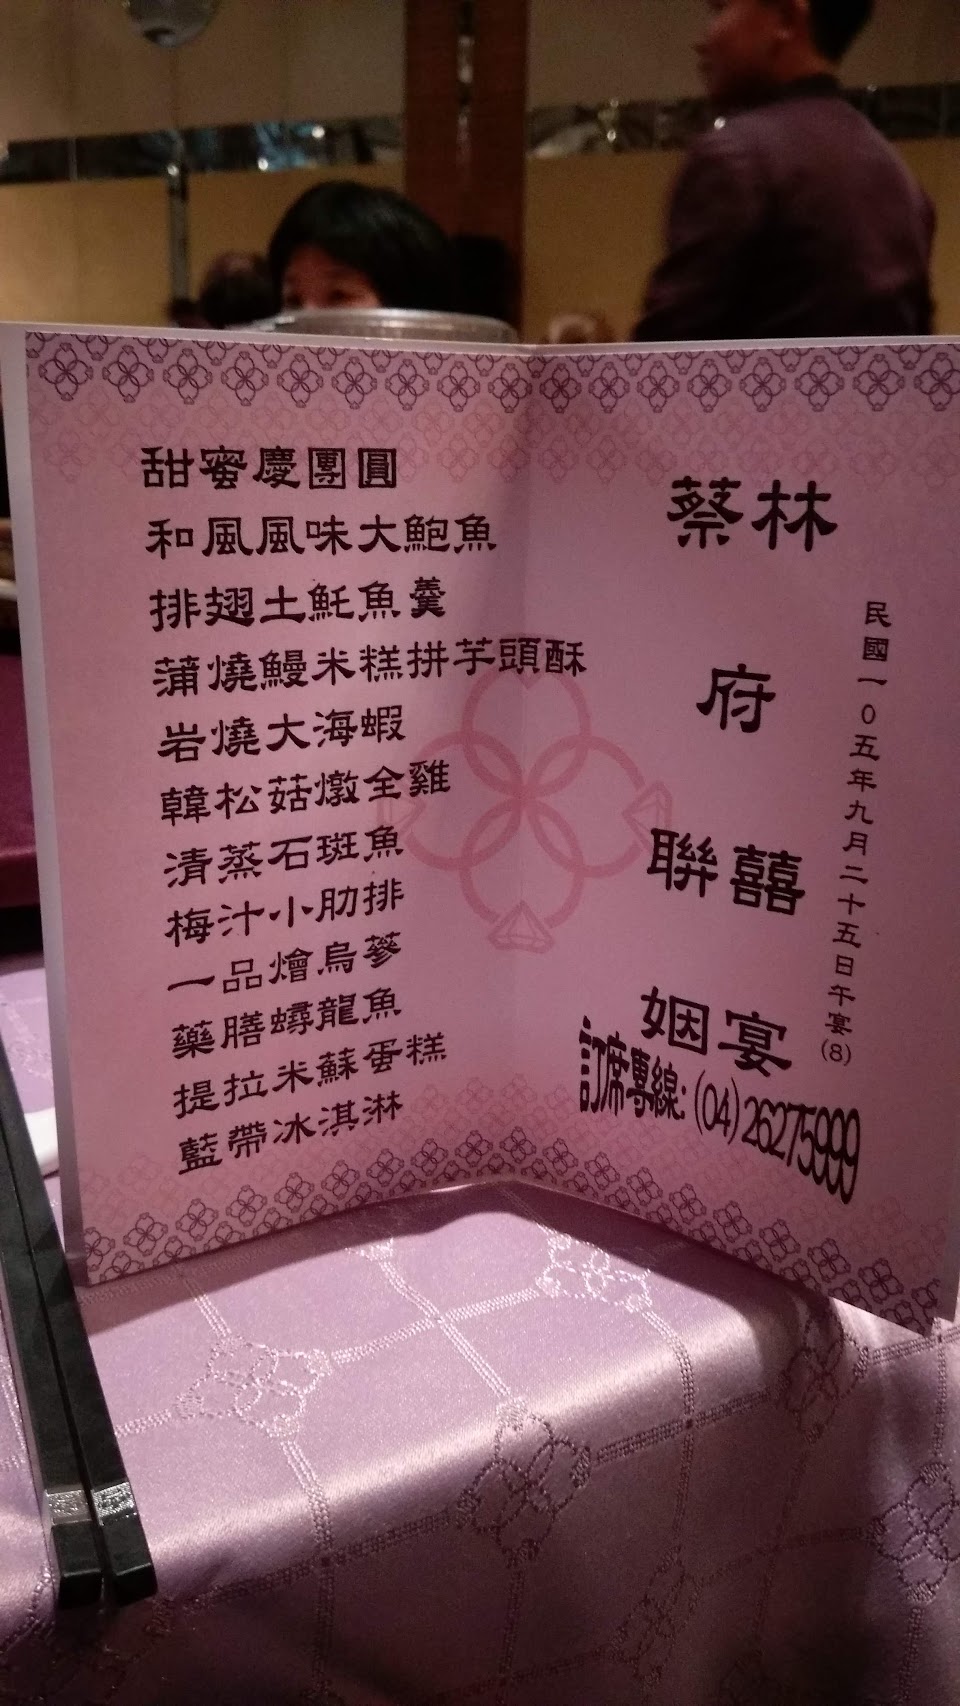 甜蜜慶團圓
和風風味大鮑魚
排翅土魠魚羹
蒲燒鰻米糕拼芋頭酥
岩燒大海蝦
韓松菇燉全雞
清蒸石斑魚
梅汁小肋排
一品燴烏蔘
藥膳蟳龍魚
提拉米蘇蛋糕
藍帶冰淇淋
蔡林
府
聯囍
姻宴
民國一0五年九月二十五日午宴(8)
訂席專線:(04)26275999